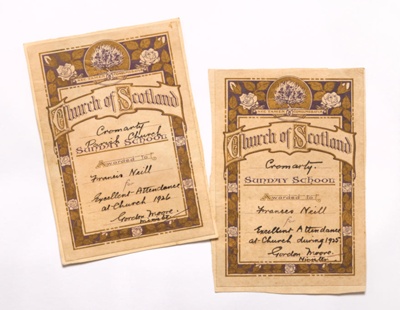 Church of Scotland
Cromarty
Parish Church
Sunday School
Awarded to
Francis Neill
for
Excellent Attendance
at Church 1926
Gordon Moore
Minister
Church of Scotland
Cromarty.
Sunday School
Awarded to
Frances Neill
for
Excellent Attendance
at Church during 1925
Gordon Moore
Minister